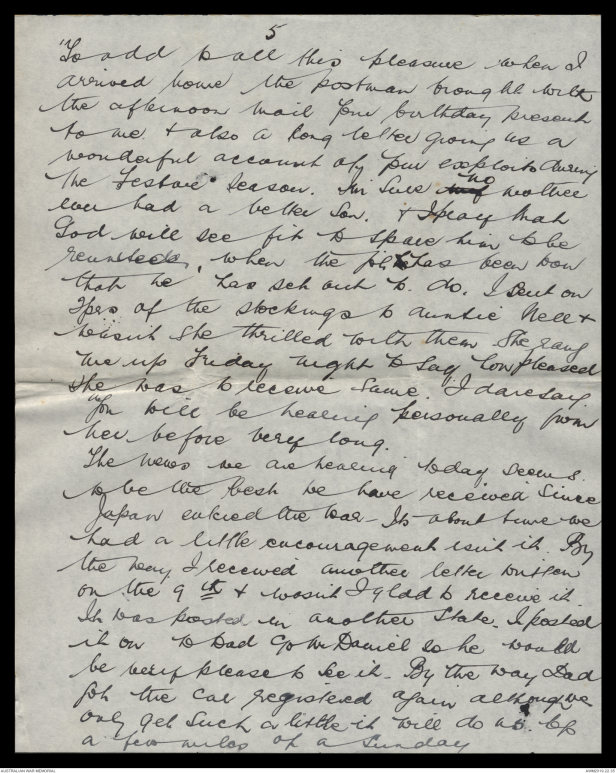 5
To add to all this pleasure when I
arrived home the postman brought with
the afternoon mail your birthday present
to me & also a long letter giving us a
wonderful account of your exploits during
the Festive season. I'm sure no mother
ever had a better son. & I pray that
God will see fit to spare him to be
reunited, when the job has been don
that he has set out to do. I sent on
2prs of the stockings to auntie Nell &
wasn't she thrilled with them she rang
me up Friday night to say how pleased
she was to receive same. I daresay
you will be hearing personally from
her before very long.
The news we are hearing today seems
to be the best we have received since
Japan entered the war - Its about time we
had a little encouragement isn't it. By
the way I received another letter written
on the 9th & wasn't I glad to receive it
It was posted in another State. I posted
it on to Dad c/o Mr Daniel so he would
be very please to see it. By the way Dad
got the car registered again although we
only get such a little it will do us to
a few miles of a Sunday
AUSTRALIAN WAR MEMORIAL